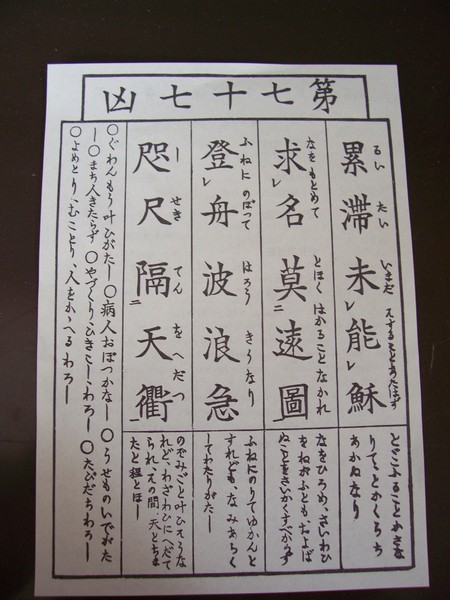 第七十七凶
るい たい いまだ スすることあたはず
累滞未レ能レ穌
とどこふることかさな
りて、とかくらち
あかぬなり
なをもとめて とほくはかることなかれ
求レ名莫二遠圖一
なをひろめ、さいわひ
をねがふともおよば
ぬことをさいかくすべからず
ふねにのぼつて はろう きうなり
登レ舟波浪急
ふねにのりてゆかんと
すれども、なみあらく
してわたりがたー
ー せき てんをへだつ
咫尺隔二天衢一
のぞみごと叶ひそうな
れど、わざわひにへだて
られ、その間、天とちほ
程とほー
○ぐわんもう叶ひがたー ○病人おぼつかなー ○うせものいでがた
ー ○まち人きたらず ○やづくり、ひきこー、わろー ○たびだちわろー
○よめとり、むことり、人をかゝへるわろー